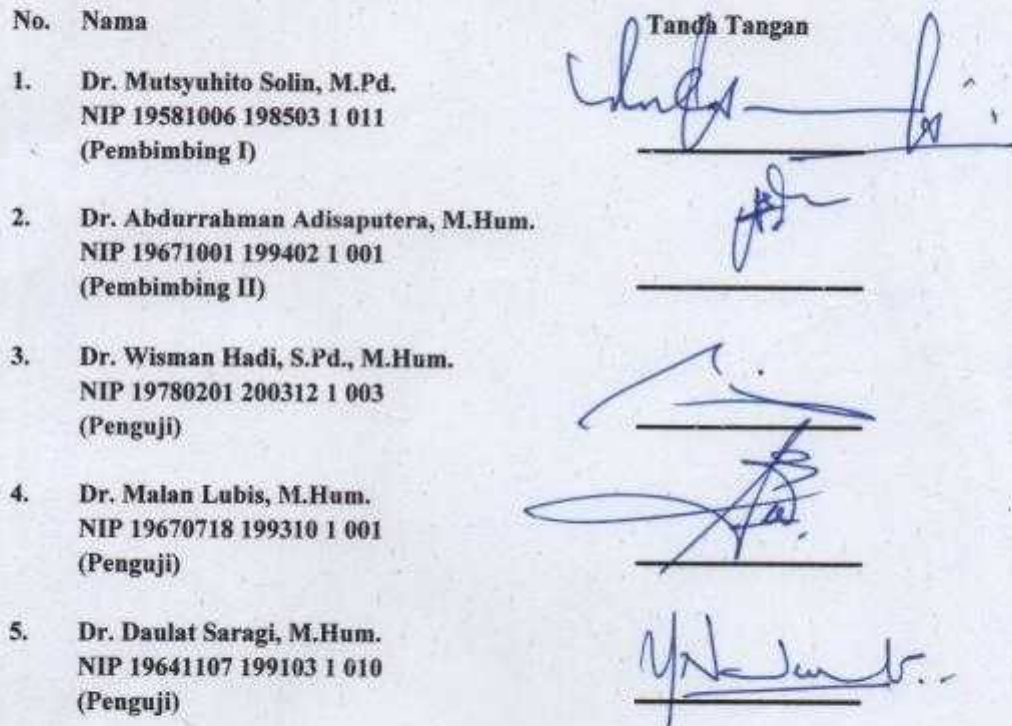 No. Nama Tanda Tangan
1. Dr. Mutsyuhito Solin, M.Pd.
NIP 19581006 198503 1 011
(Pembimbing I)
2. Dr. Abdurrahman Adisaputera, M.Hum.
NIP 19671001 199402 1 001
(Pembimbing II)
3. Dr. Wisman Hadi, S.Pd., M.Hum.
NIP 19780201 200312 1 003
(Penguji)
4. Dr. Malan Lubis, M.Hum.
NIP 19670718 199310 1 001
(Penguji)
5. Dr. Daulat Saragi, M.Hum.
NIP 19641107 199103 1 010
(Penguji)